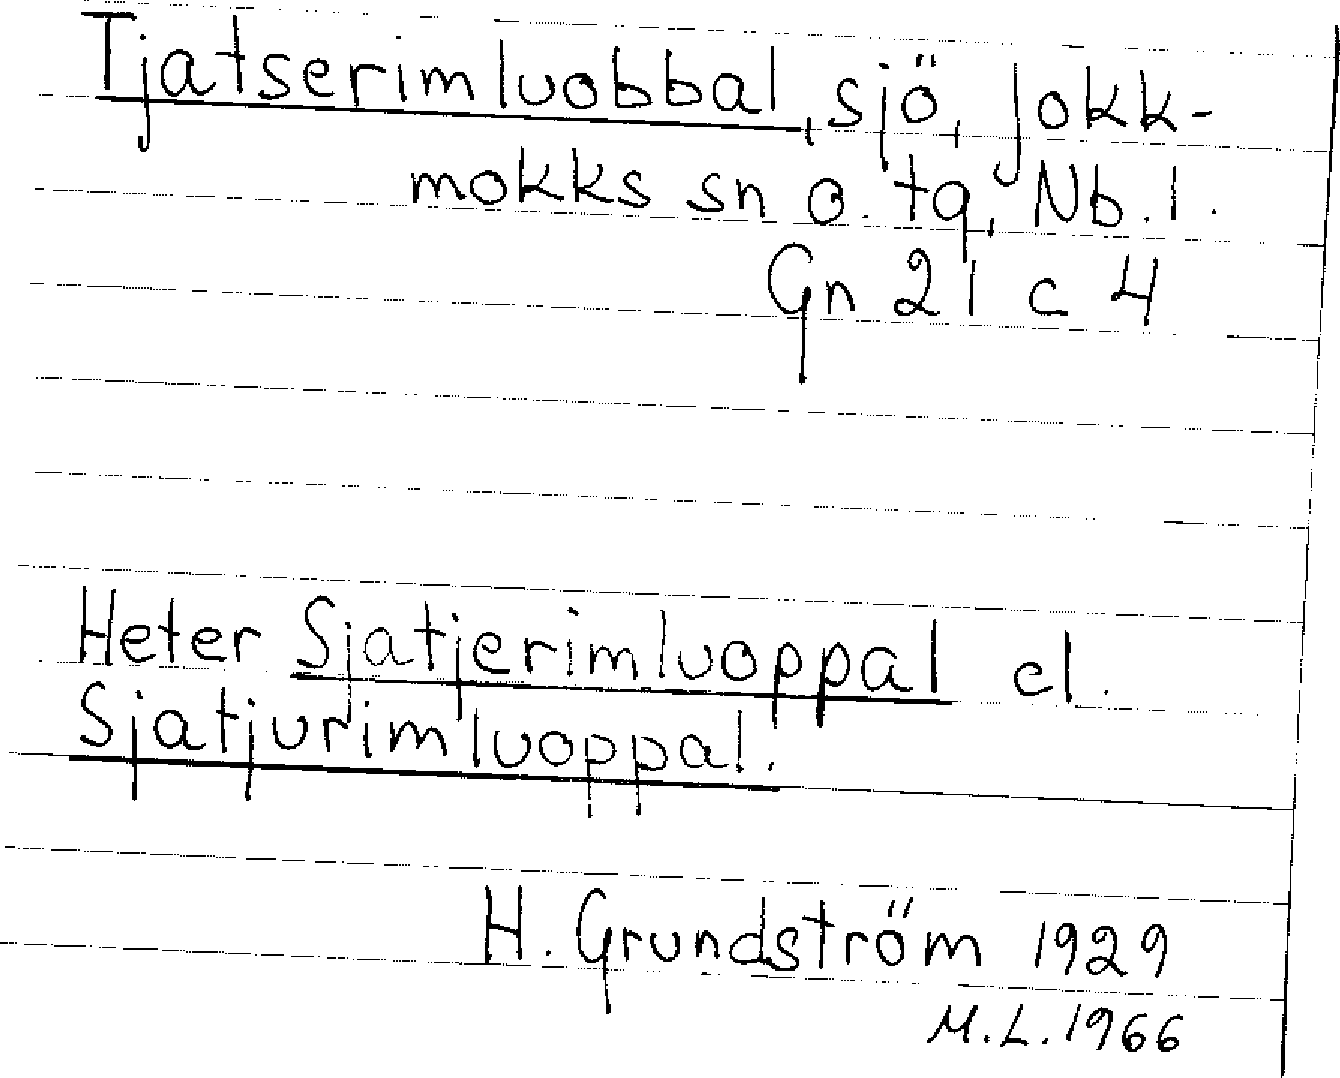 Tjatserimluobbal, sjö, Jokk-
mokks sn o. tg, Nb. l.
Gn 21 c 4
Heter Sjatjerimluoppal el.
Sjatjurimluoppal.
H. Grundström 1929
M.L. 1966